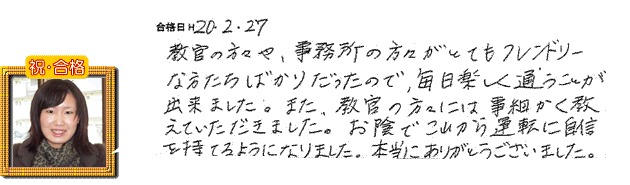 合格日 H20.2.27
教官の方々や、事務所の方々がとてもフレンドリー
な方たちばかりだったので、毎日楽しく通うことが
出来ました。また、教官の方々には事細かく教
えていただきました。お陰でこれから運転に自信
を持てるようになりました。本当にありがとうございました。
祝・合格